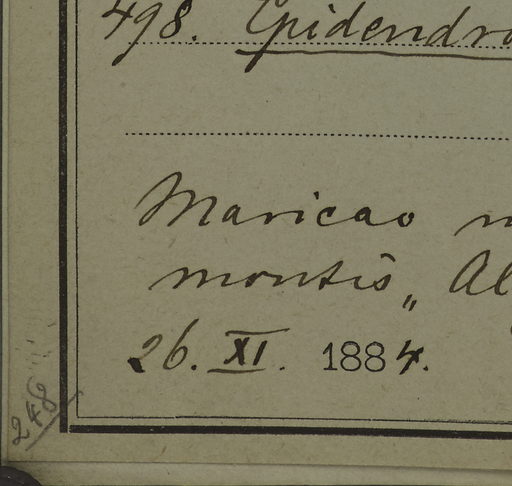 498. Epidendr
Maricao
montis „ Al
26. XI. 1884.
248